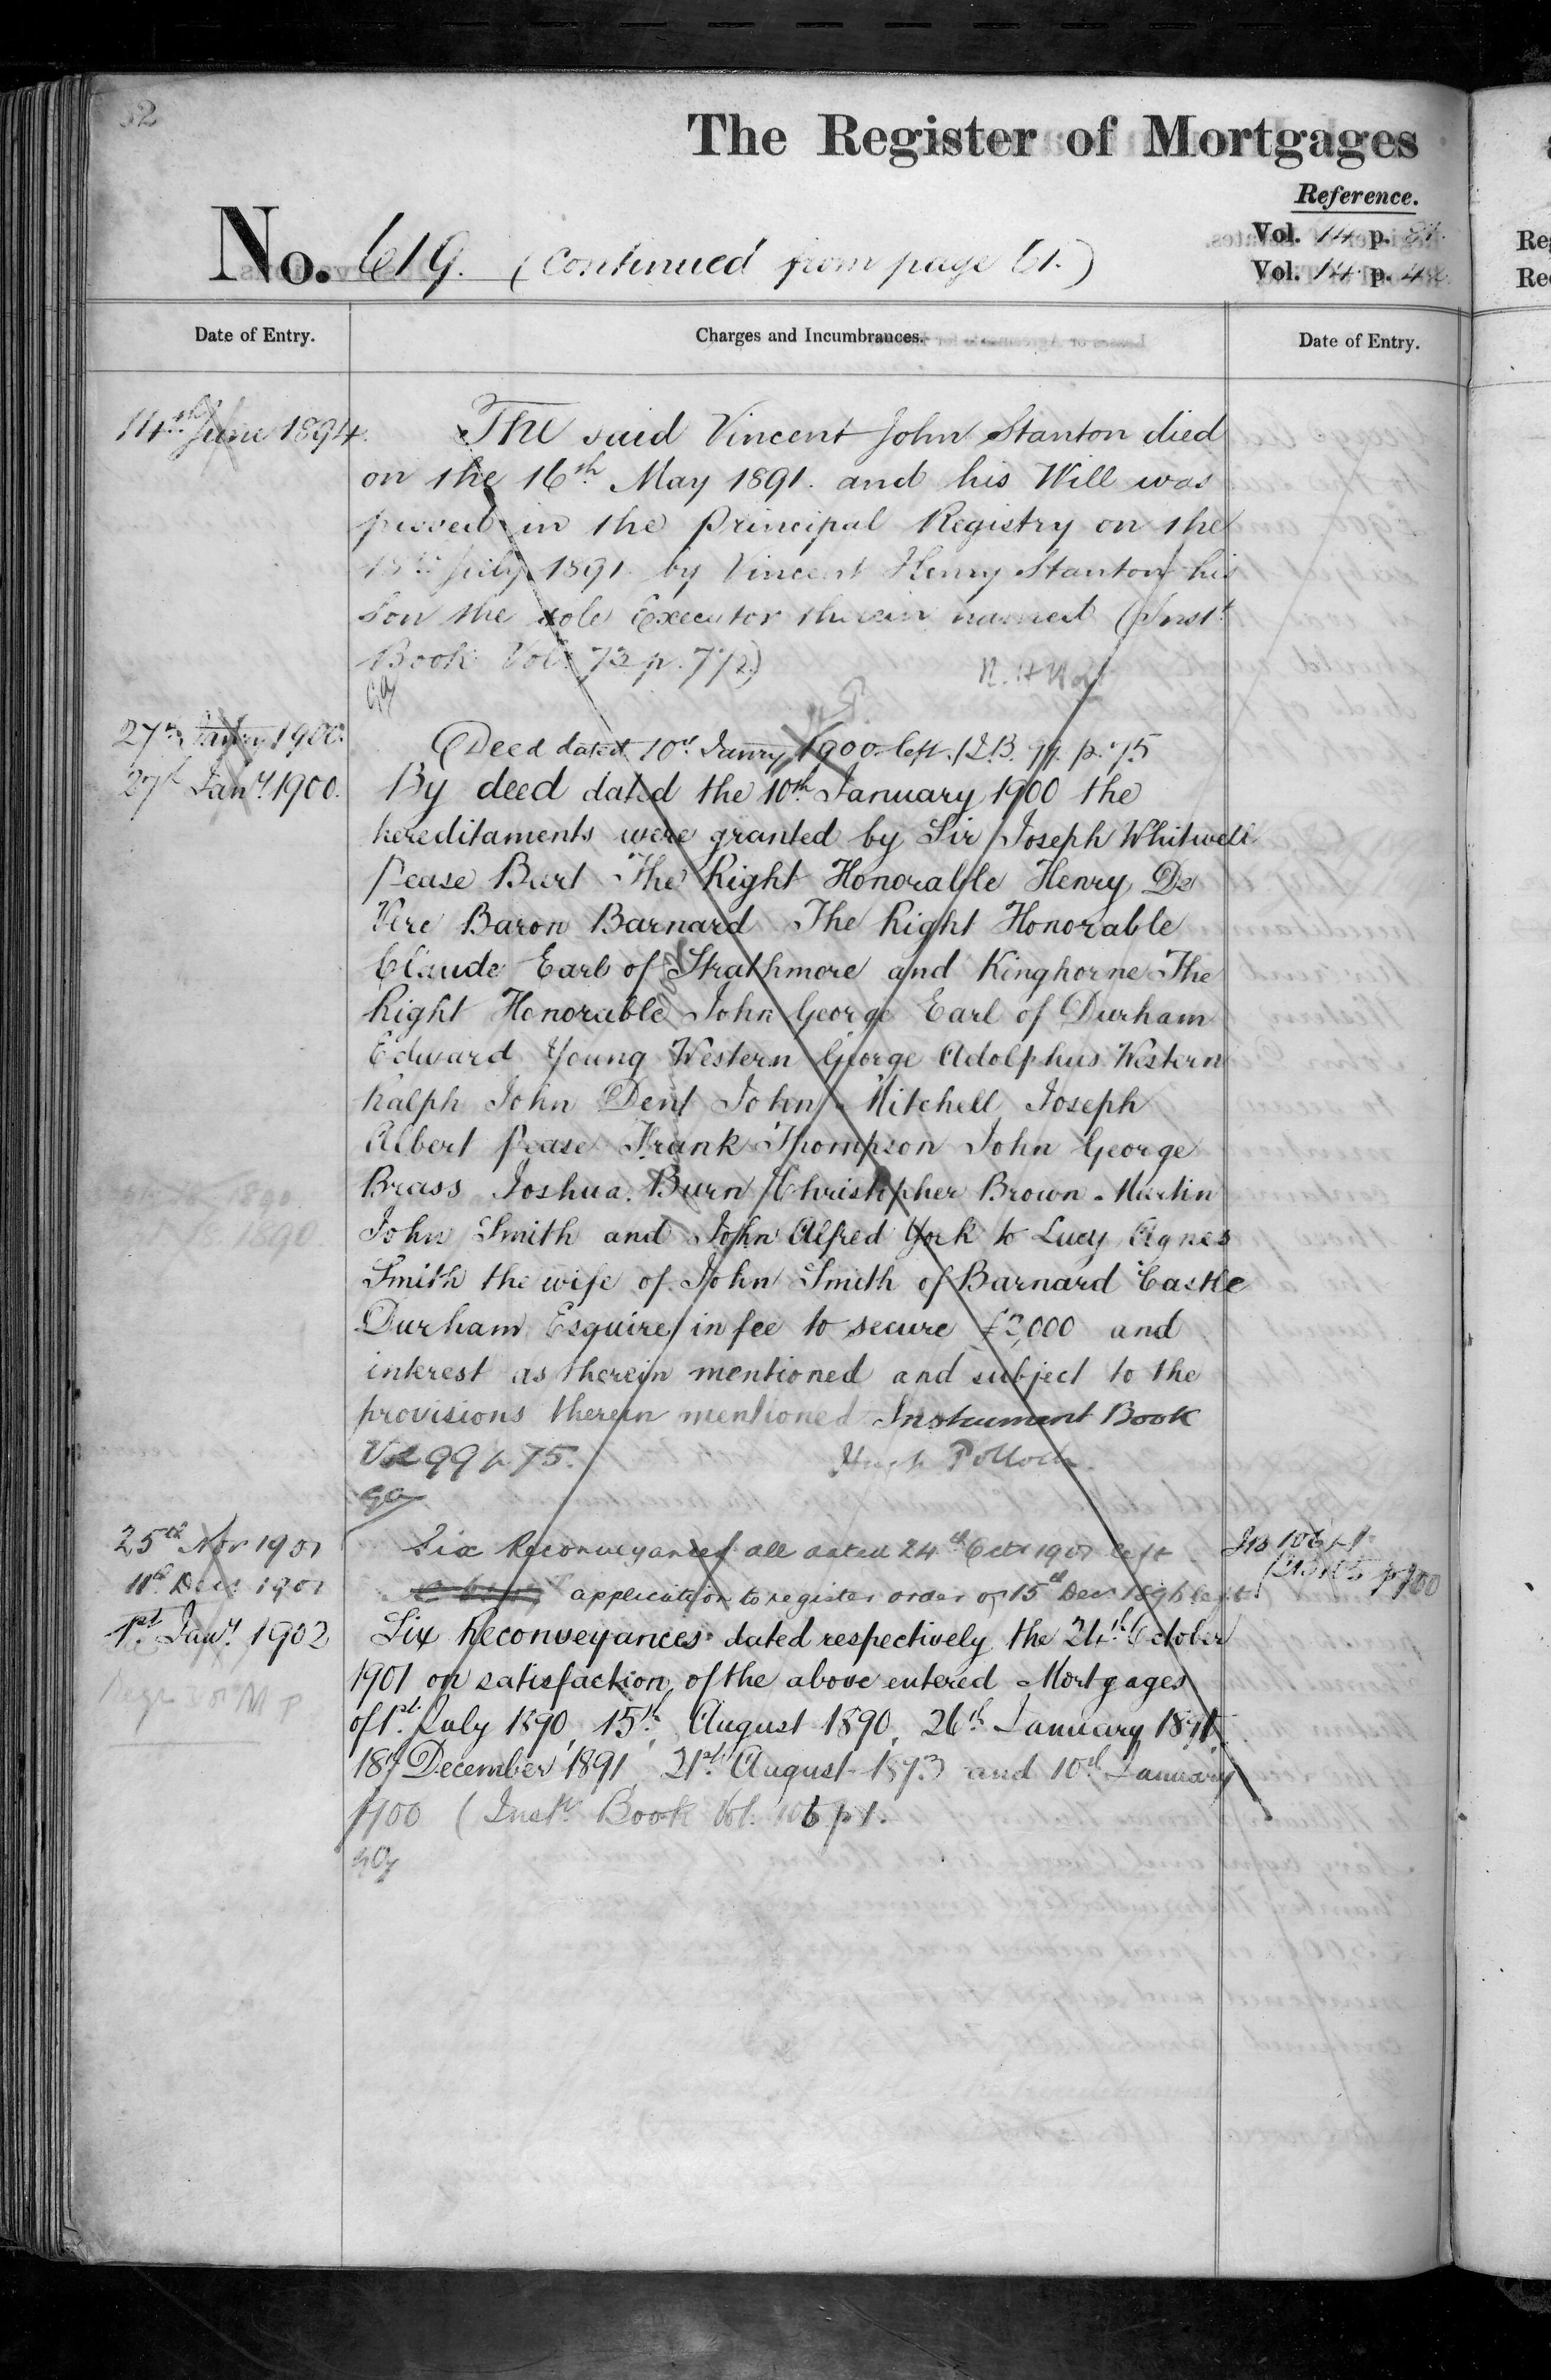 The Register of Mortgages
Reference.
Vol. 14 p.
Vol. 14 p.
No. 619. (continued from page 61.)
Date of Entry.
Charges and Incumbrances.
Date of Entry.
14th June 1894.
The said Vincent John Stanton died
on the 16th May 1891. and his Will was
proved in the Principal Registry on the
July 1891 by Vincent Henry Stanton his
Son the sole Executor therein named (Inst
Book Vol. 73 p. 72)
27th Janry 1900.
(Deed dated 10th Janry 1900 left. I.B. 99. p. 75
27th Jany. 1900.
By deed dated the 10th January 1900 the
hereditaments were granted by Sir Joseph Whitwell
Pease Bart The Right Honorable Henry De
Vere Baron Barnard The Right Honorable
Claude Earl of Strathmore and Kinghorne The
Right Honorable John George Earl of Durham
Edward Young Western George Adolphus Western
Ralph John Dent John Mitchell Joseph
Albert Pease Frank Thompson John George
Brass Joshua Burn Christopher Brown Martin
John Smith and John Alfred York to Lucy Agnes
Smith the wife of John Smith of Barnard Castle
Durham Esquire in fee to secure £2,000 and
interest as therein mentioned and subject to the
provisions therein mentioned Instrument Book
Vol 99 p 75.
Hugh Pollock.
25th Nov 1901
Six Reconveyances all dated 24th Octr 1901 left
IB 106 p 1
11th Decr 1901
application to register order of 15th Decr 1896 left
p 100
1st Jany. 1902
Six Reconveyances dated respectively the 24th October
1901 on satisfaction of the above entered Mortgages
of 1st. July 1890, 15th. August 1890, 26th January 1891
18th December 1891, 21st. August 1893 and 10th January
1900 (Inst. Book Vol. 106 p 1.